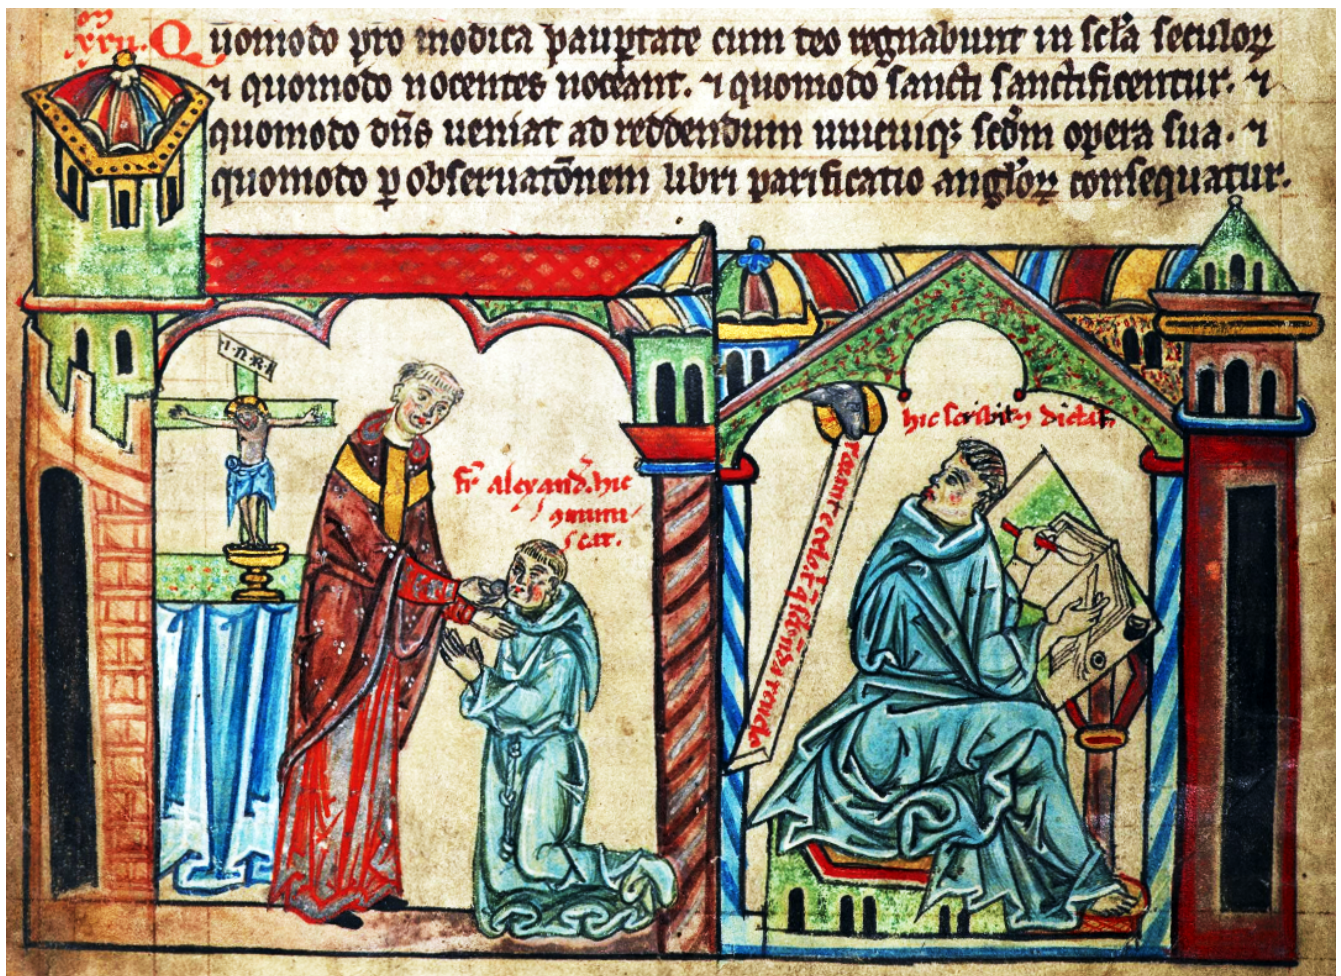 xxii. Quomodo pro modica paup̲tate cum deo regnabunt in scl̅a seculoꝝ
⁊ quomodo nocentes noceant. ⁊ quomodo sancti sanctificentur. ⁊
quomodo dn̄s ueniat ad reddendum unicuiqꝫ scd̄m opera sua. ⁊
quomodo ꝑ obseruatōnem libri parificatio angl̓oꝝ consequatur.
I.N.R.I
fr̄ alexand̓. hic
hic scribit ⁊ dictat.